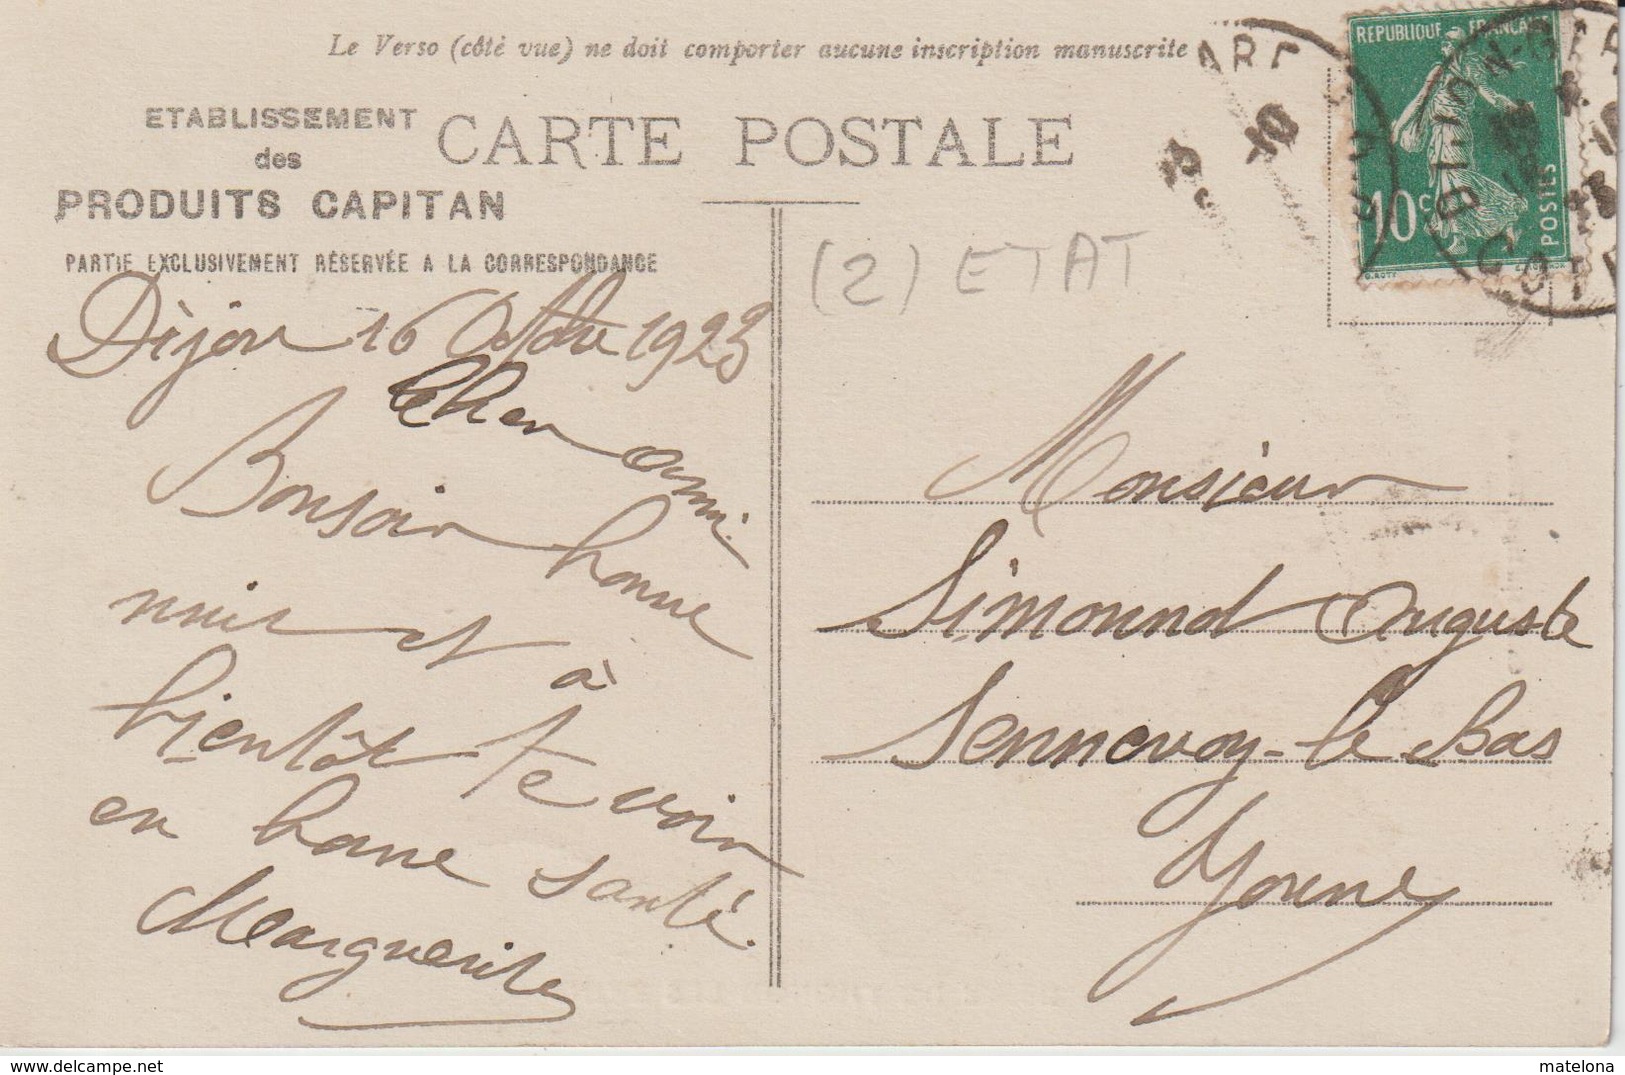 Le Verso (côté vue) ne doit comporter aucune inscription manuscrite
ETABLISSEMENT
des
PRODUITS CAPITAN
CARTE POSTALE
PARTIE EXCLUSIVEMENT RÉSERVÉE A LA CORRESPONDANCE
(2) ETAT
RÉPUBLIQUE FRANÇAISE
10c
POSTES
Dijon 16 Octobre 1923
Cher ami
Bonsoir bonne
nuit et à
bientôt te voir
en bonne santé.
Marguerite
Monsieur
Simonnot Auguste
Sennevoy-le Bas
Yonne
matelona